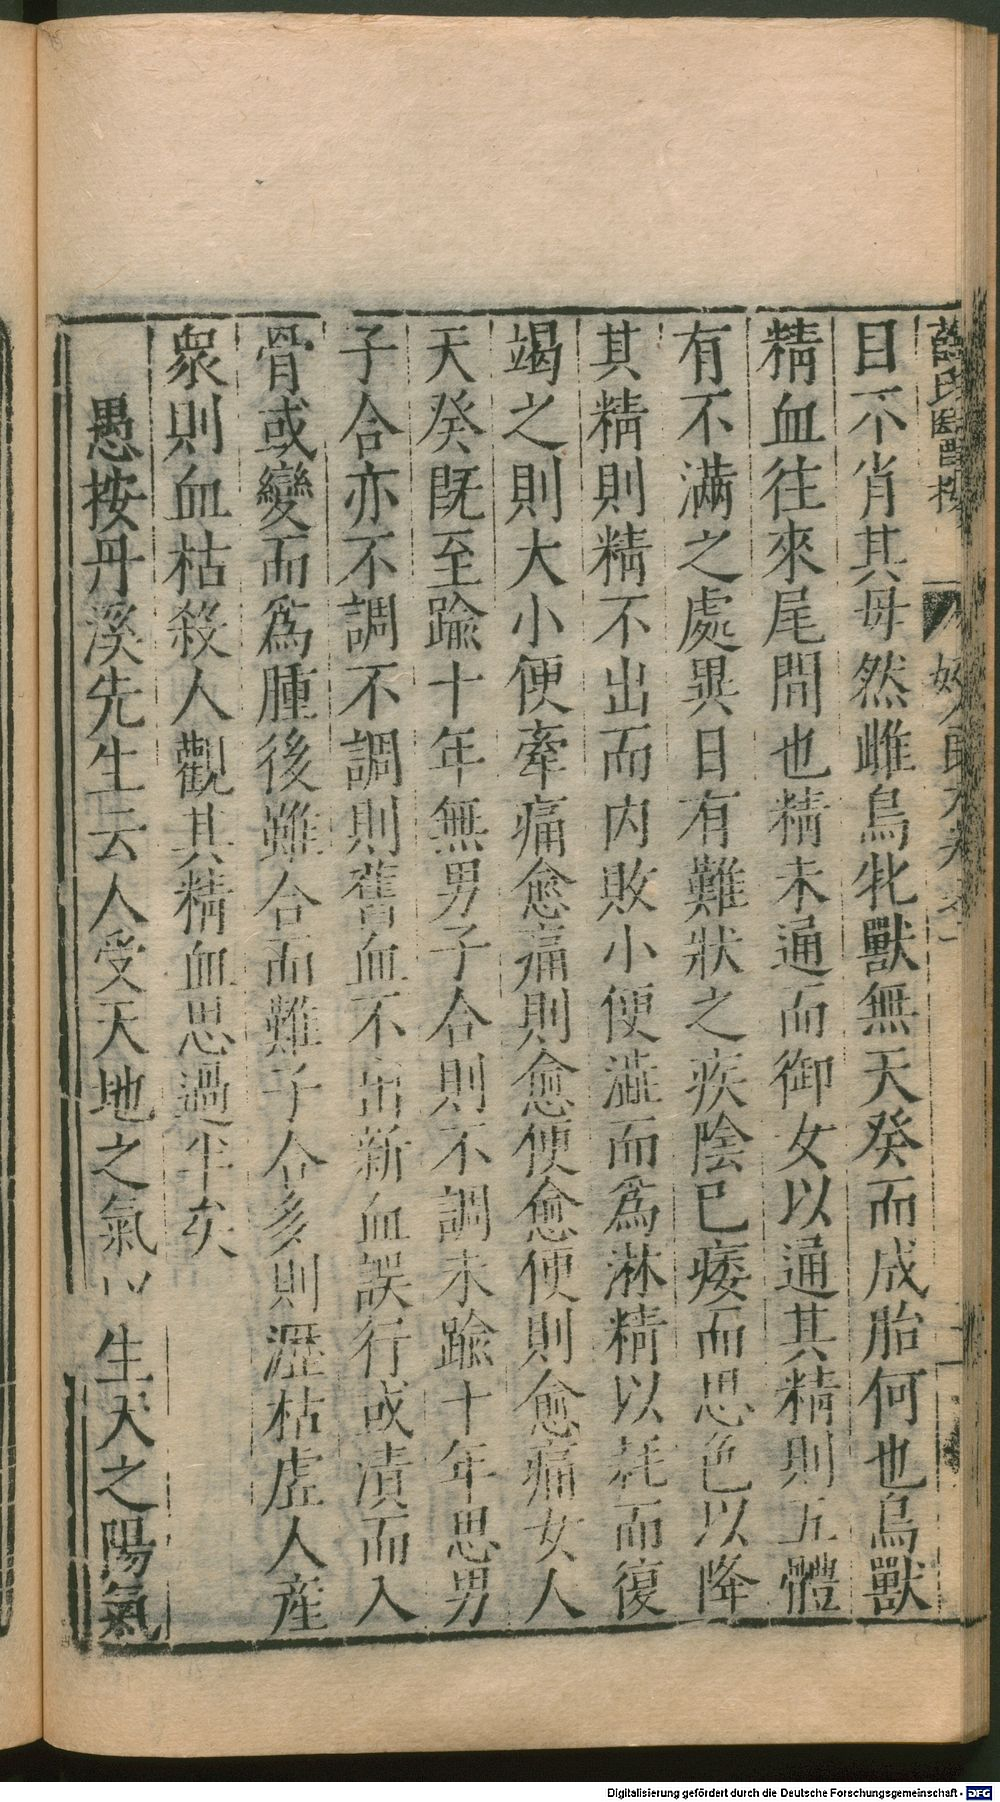 薛氏醫按 婦人良方卷之一
目不肖其母然雌烏牝獸無天癸而成胎何也烏獸
精血往來尾閭也精未通而御女以通其精則五體
有不滿之處異日有難狀之疾陰已痿而思色以降
其精則精不出而内敗小便澁而爲淋精以耗而復
竭之則大小便牽痛愈痛則愈便愈便則愈痛女人
天癸既至踰十年無男子合則不調未踰十年思男
子合亦不調不調則舊血不出新血誤行或漬而入
骨或變而爲腫後雖合而難子合多則瀝枯虚人産
衆則血枯殺人觀其精血思過半矣
愚按丹溪先生云人受天地之氣以生天之陽氣
Digitalisierung gefördert durch die Deutsche Forschungsgemeinschaft - DFG